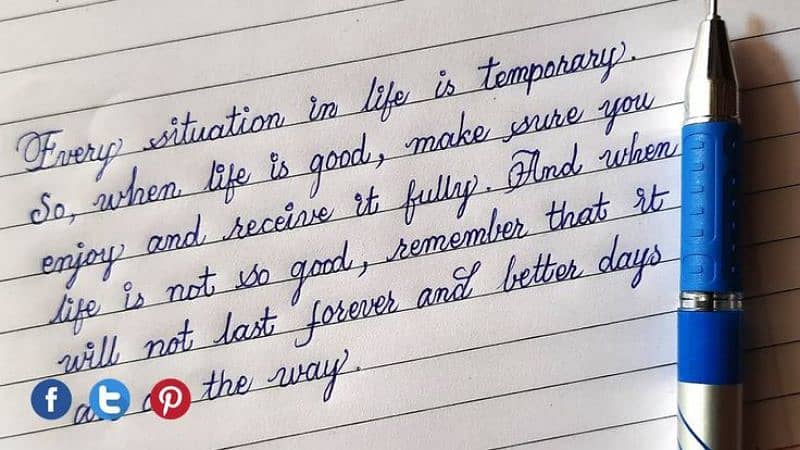 Every situation in life is temporary.
So, when life is good, make sure you
enjoy and receive it fully. And when
life is not so good, remember that it
will not last forever and better days
the way.